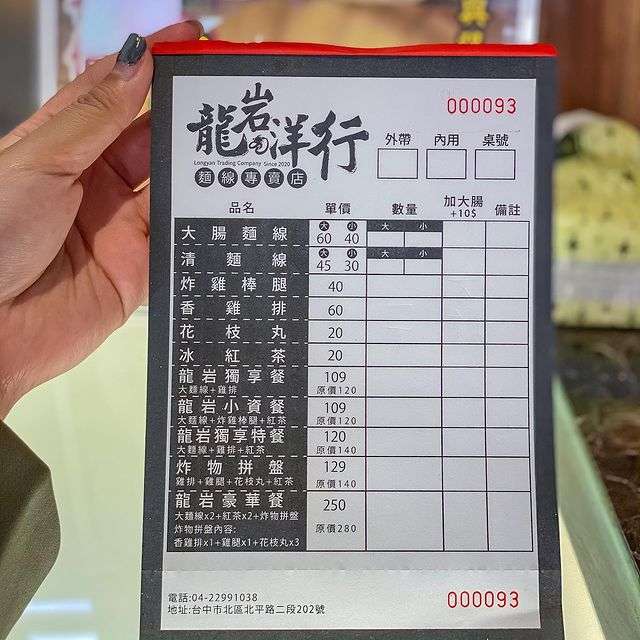 000093
龍岩洋行
Longyan Trading Company Since 2020
麵線專賣店
外帶 內用 桌號
品名 單價 數量 加大腸 +10$ 備註
大腸麵線 大 60 小 40 大 小
清麵線 大 45 小 30 大 小
炸雞棒腿 40
香雞排 60
花枝丸 20
冰紅茶 20
龍岩獨享餐 109
大麵線+雞排 原價120
龍岩小資餐 109
大麵線+炸雞棒腿+紅茶 原價120
龍岩獨享特餐 120
大麵線+雞排+紅茶 原價140
炸物拼盤 129
雞排+雞腿+花枝丸+紅茶 原價140
龍岩豪華餐 250
大麵線x2+紅茶x2+炸物拼盤
炸物拼盤內容: 原價280
香雞排x1+雞腿x1+花枝丸x3
電話:04-22991038
地址:台中市北區北平路二段202號
000093